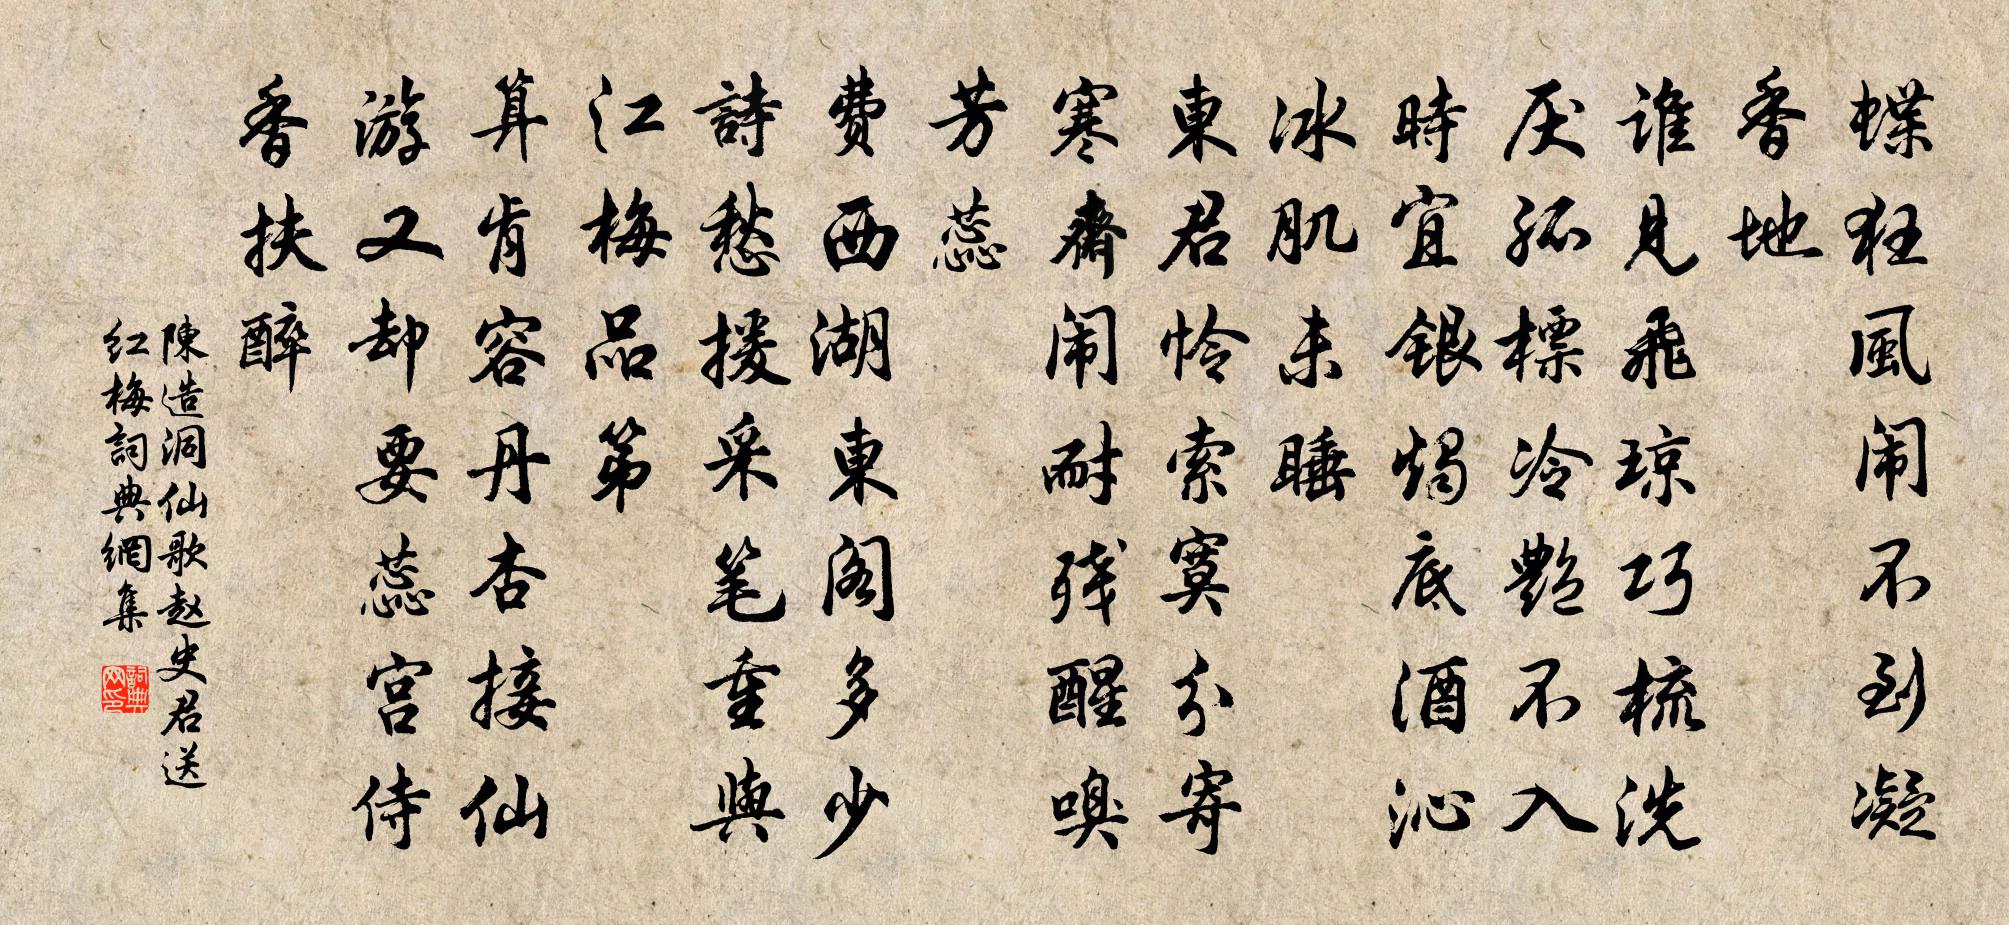 蝶狂風闹不到凝
香地
谁見飛琼巧梳洗
厌孤標冷艷不入
時宜銀燭底酒沁
冰肌未睡
東君怜索寞分寄
寒齋闹耐残醒嗅
芳蕊
費西湖東阁多少
詩愁援采笔重與
江梅品第
算肯容丹杏接仙
游又却要蕊宫侍
香扶醉
陳造洞仙歌赵史君送
红梅詞典網集
詞典
网印